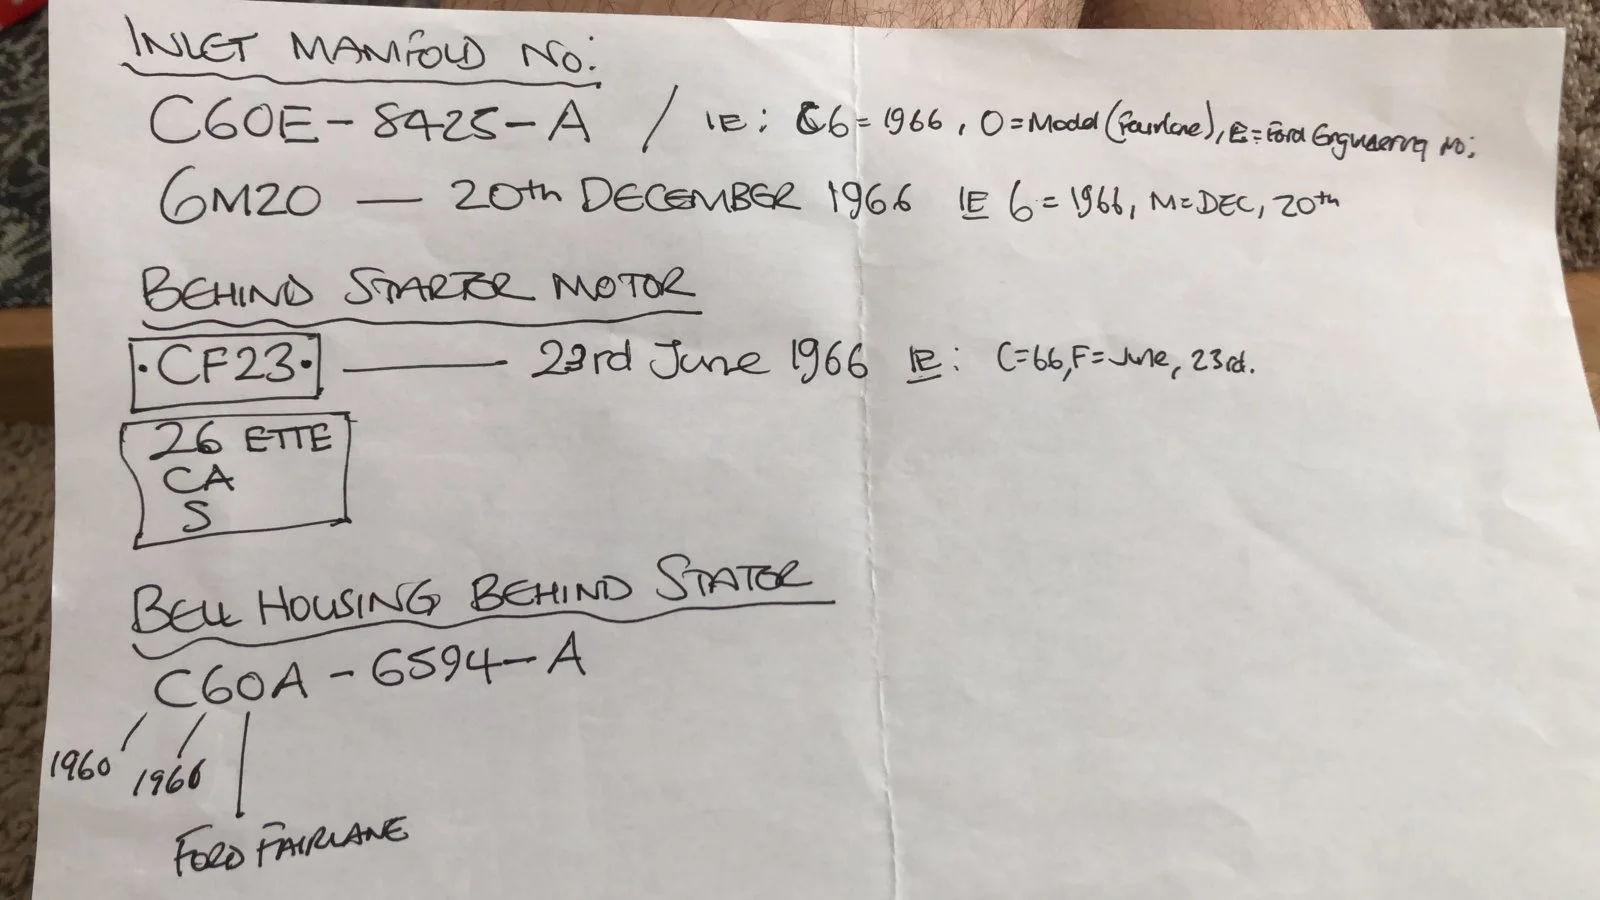 INLET MANIFOLD NO:
C60E-8425-A / IE: C6=1966, O=Model (Fairlane), E=Ford Engineering No;
6M20 — 20th DECEMBER 1966 IE 6=1966, M=DEC, 20th
BEHIND STARTER MOTOR
·CF23· — 23rd June 1966 IE: C=66, F=June, 23rd.
26 ETTE
CA
S
BELL HOUSING BEHIND STATOR
C60A-6594-A
1960 1966
FORD FAIRLANE